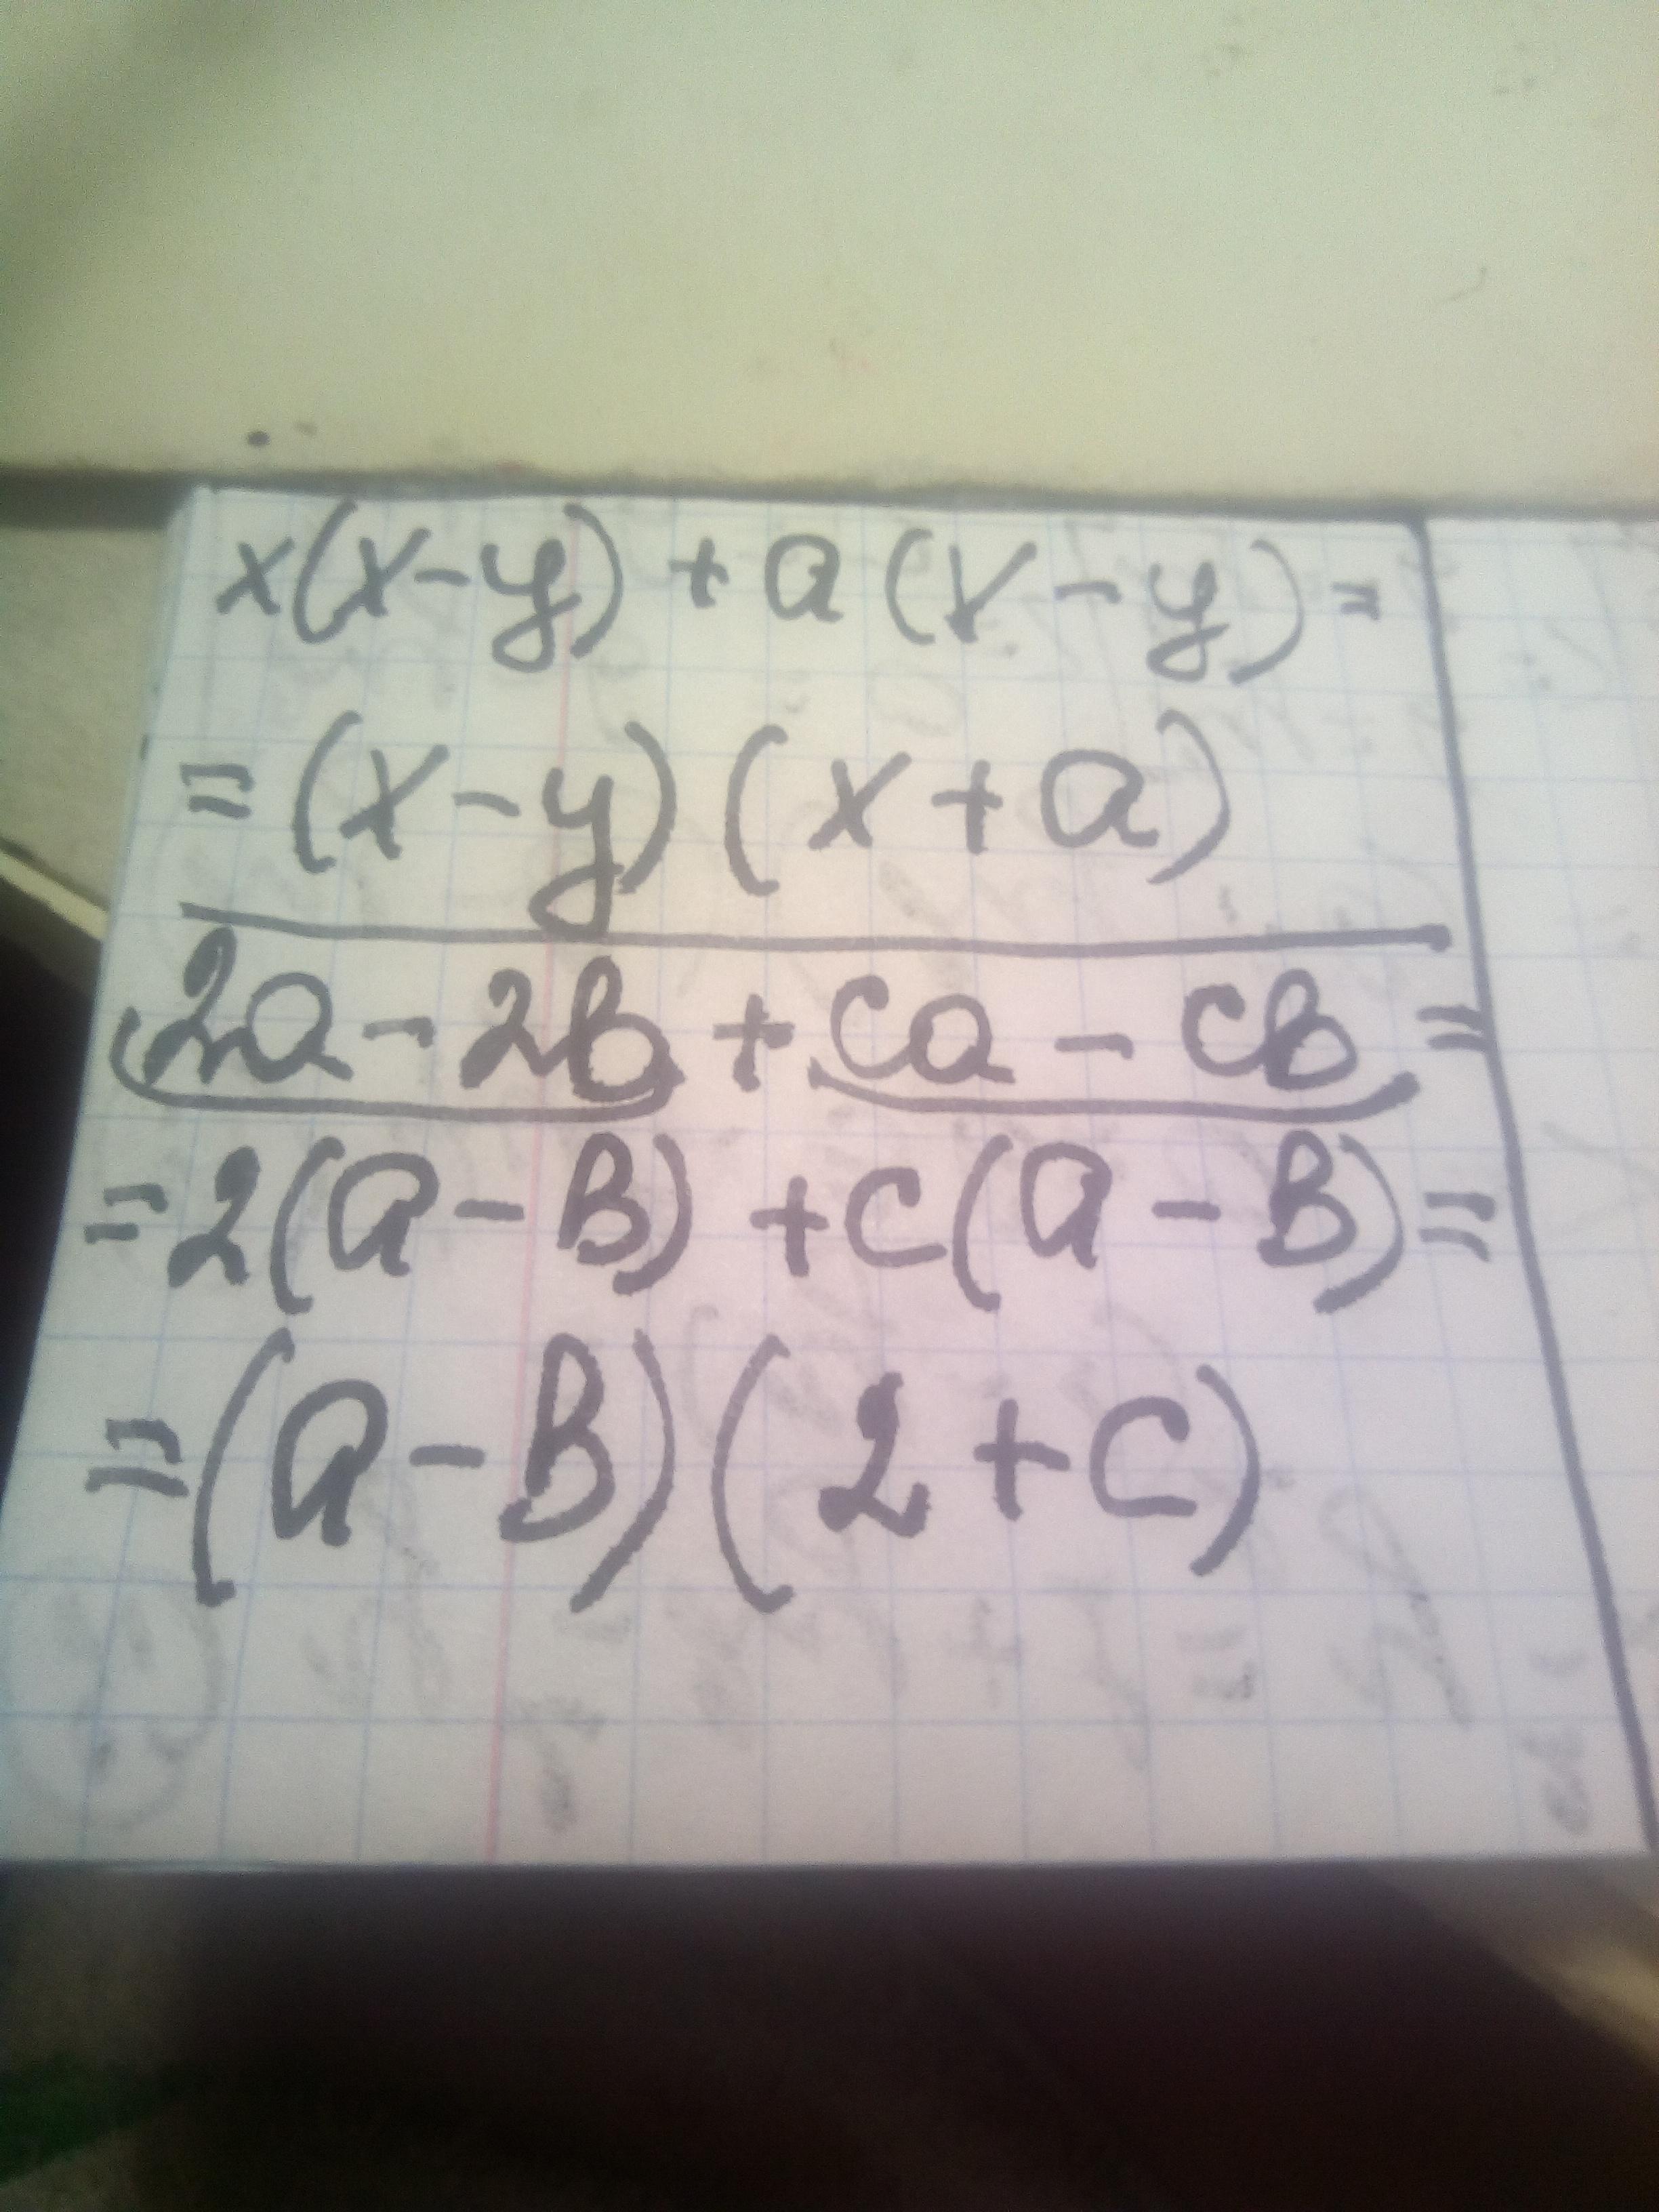 x(x-y)+a(x-y)=
=(x-y)(x+a)
2a-2b+ca-cb=
=2(a-b)+c(a-b)=
=(a-b)(2+c)